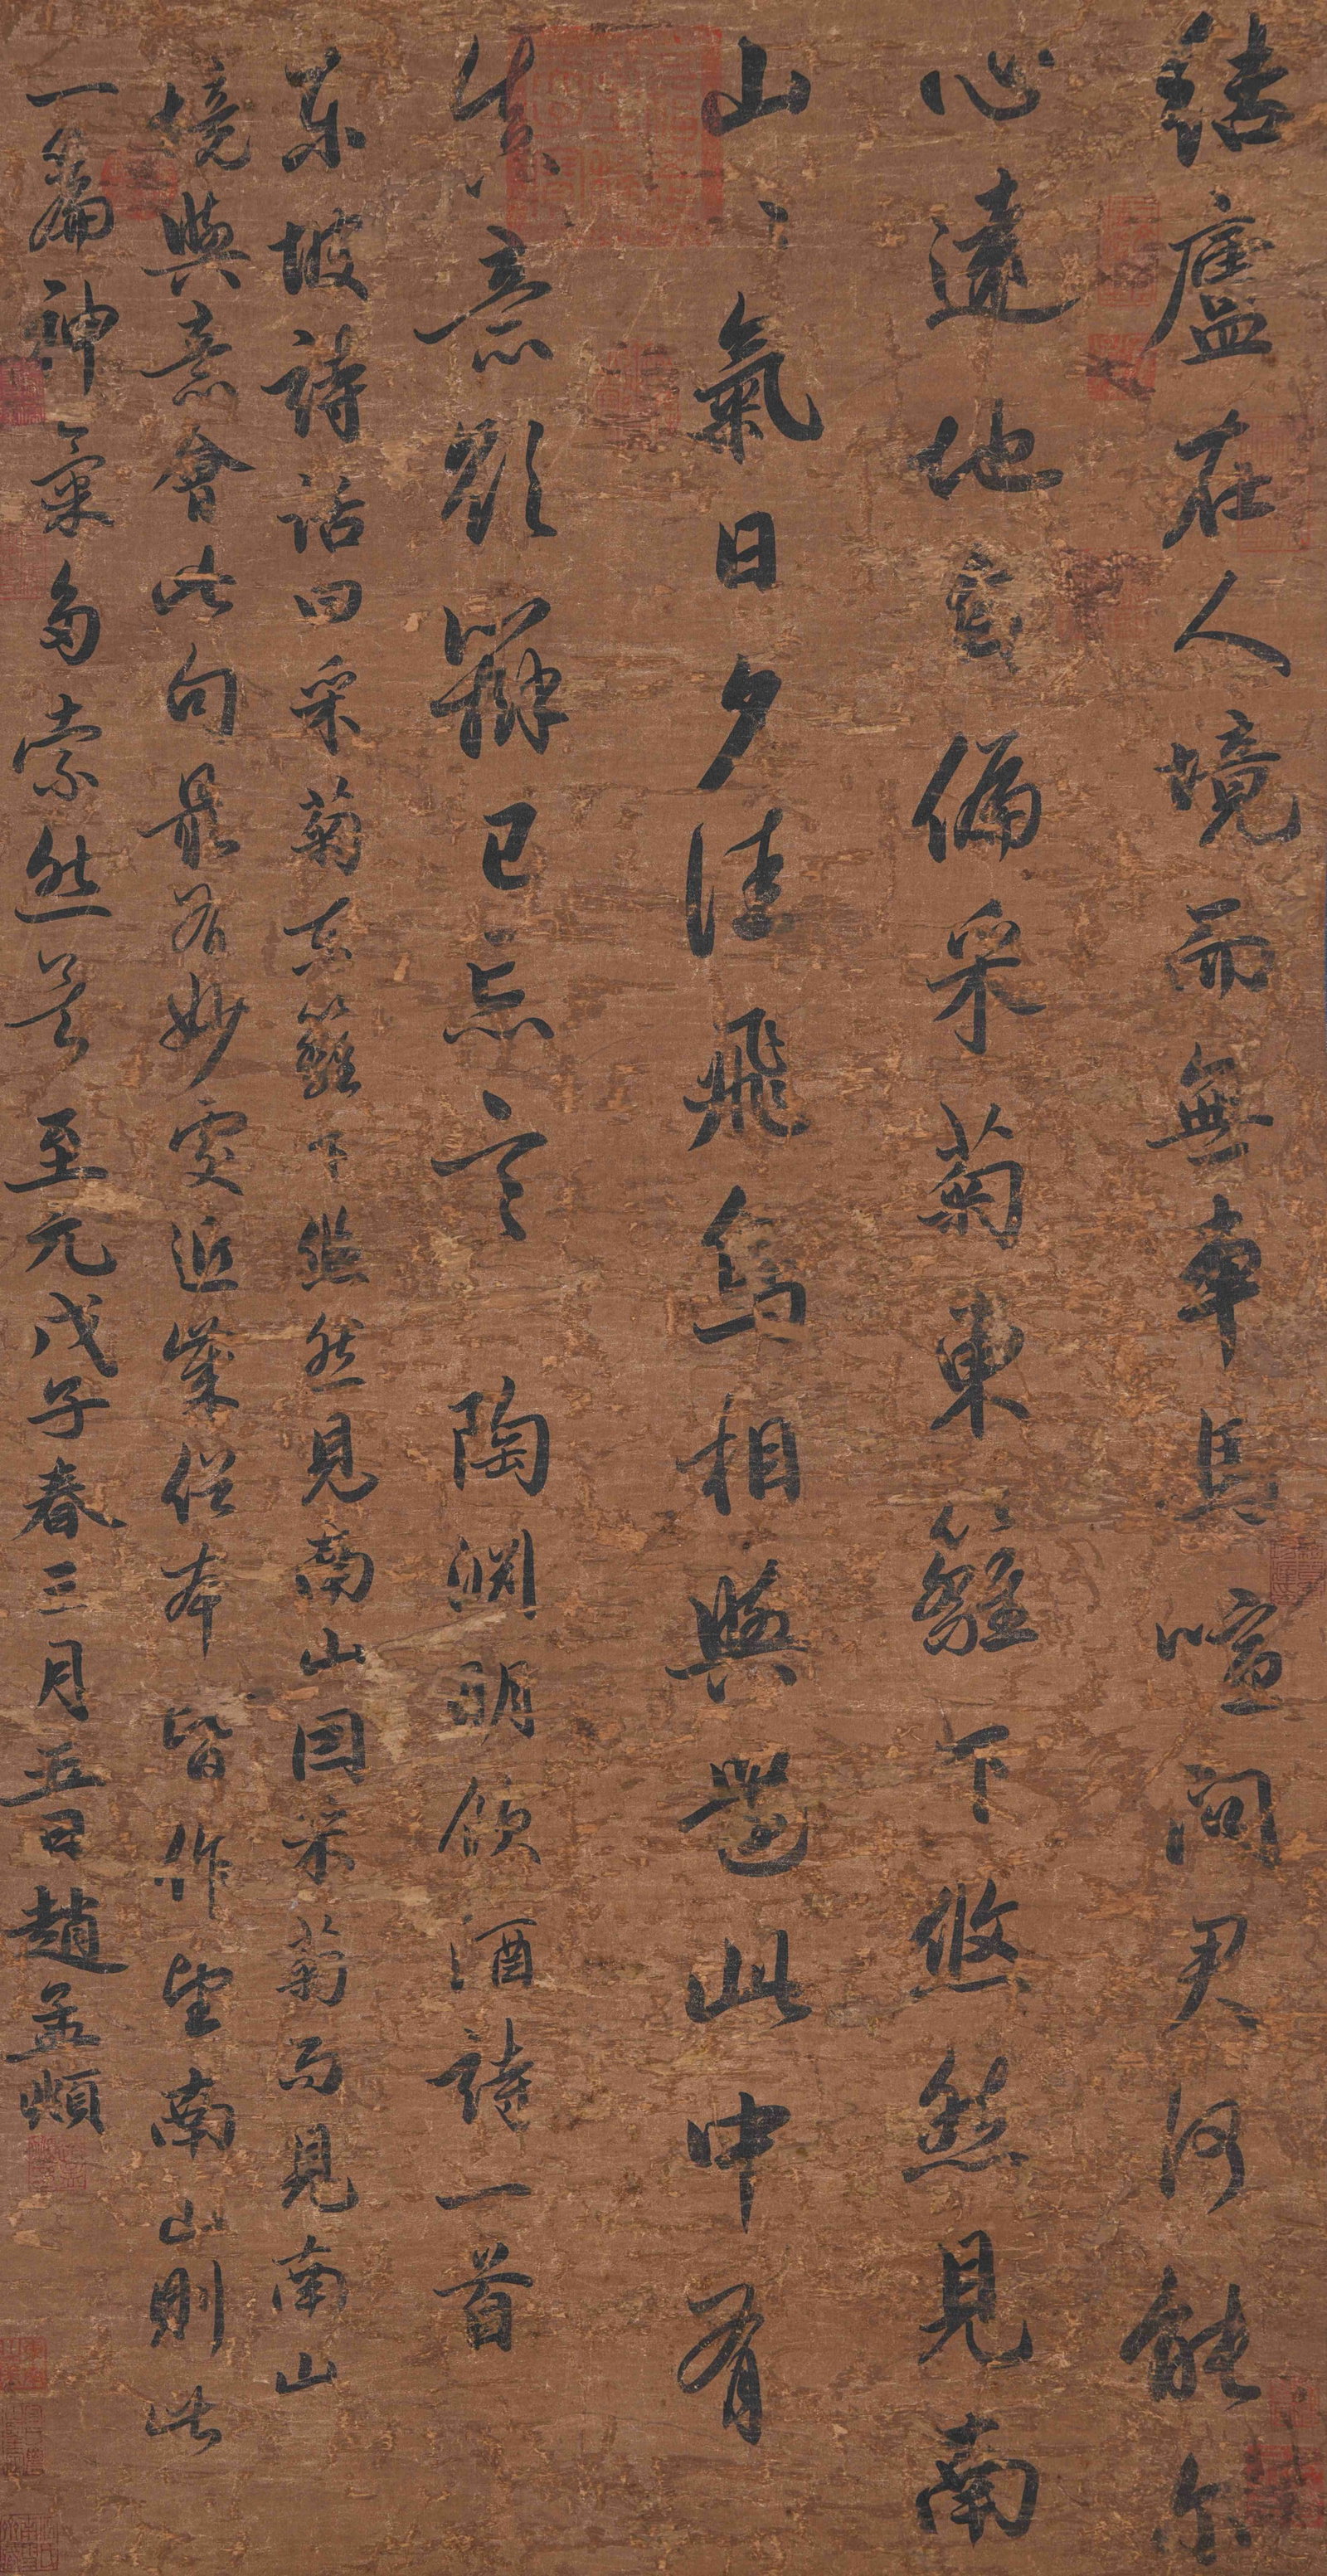 結廬在人境而無車馬喧問君何能尔
心遠地自偏采菊東籬下悠然見南
山々氣日夕佳飛鳥相與還此中有
真意欲辯已忘言 陶淵明飲酒詩一首
東坡詩話曰采菊東籬下悠然見南山因采菊而見南山
境與意會此句最有妙處近歲俗本皆作望南山則此
一篇神氣多索然矣至元戊子春三月五日趙孟頫